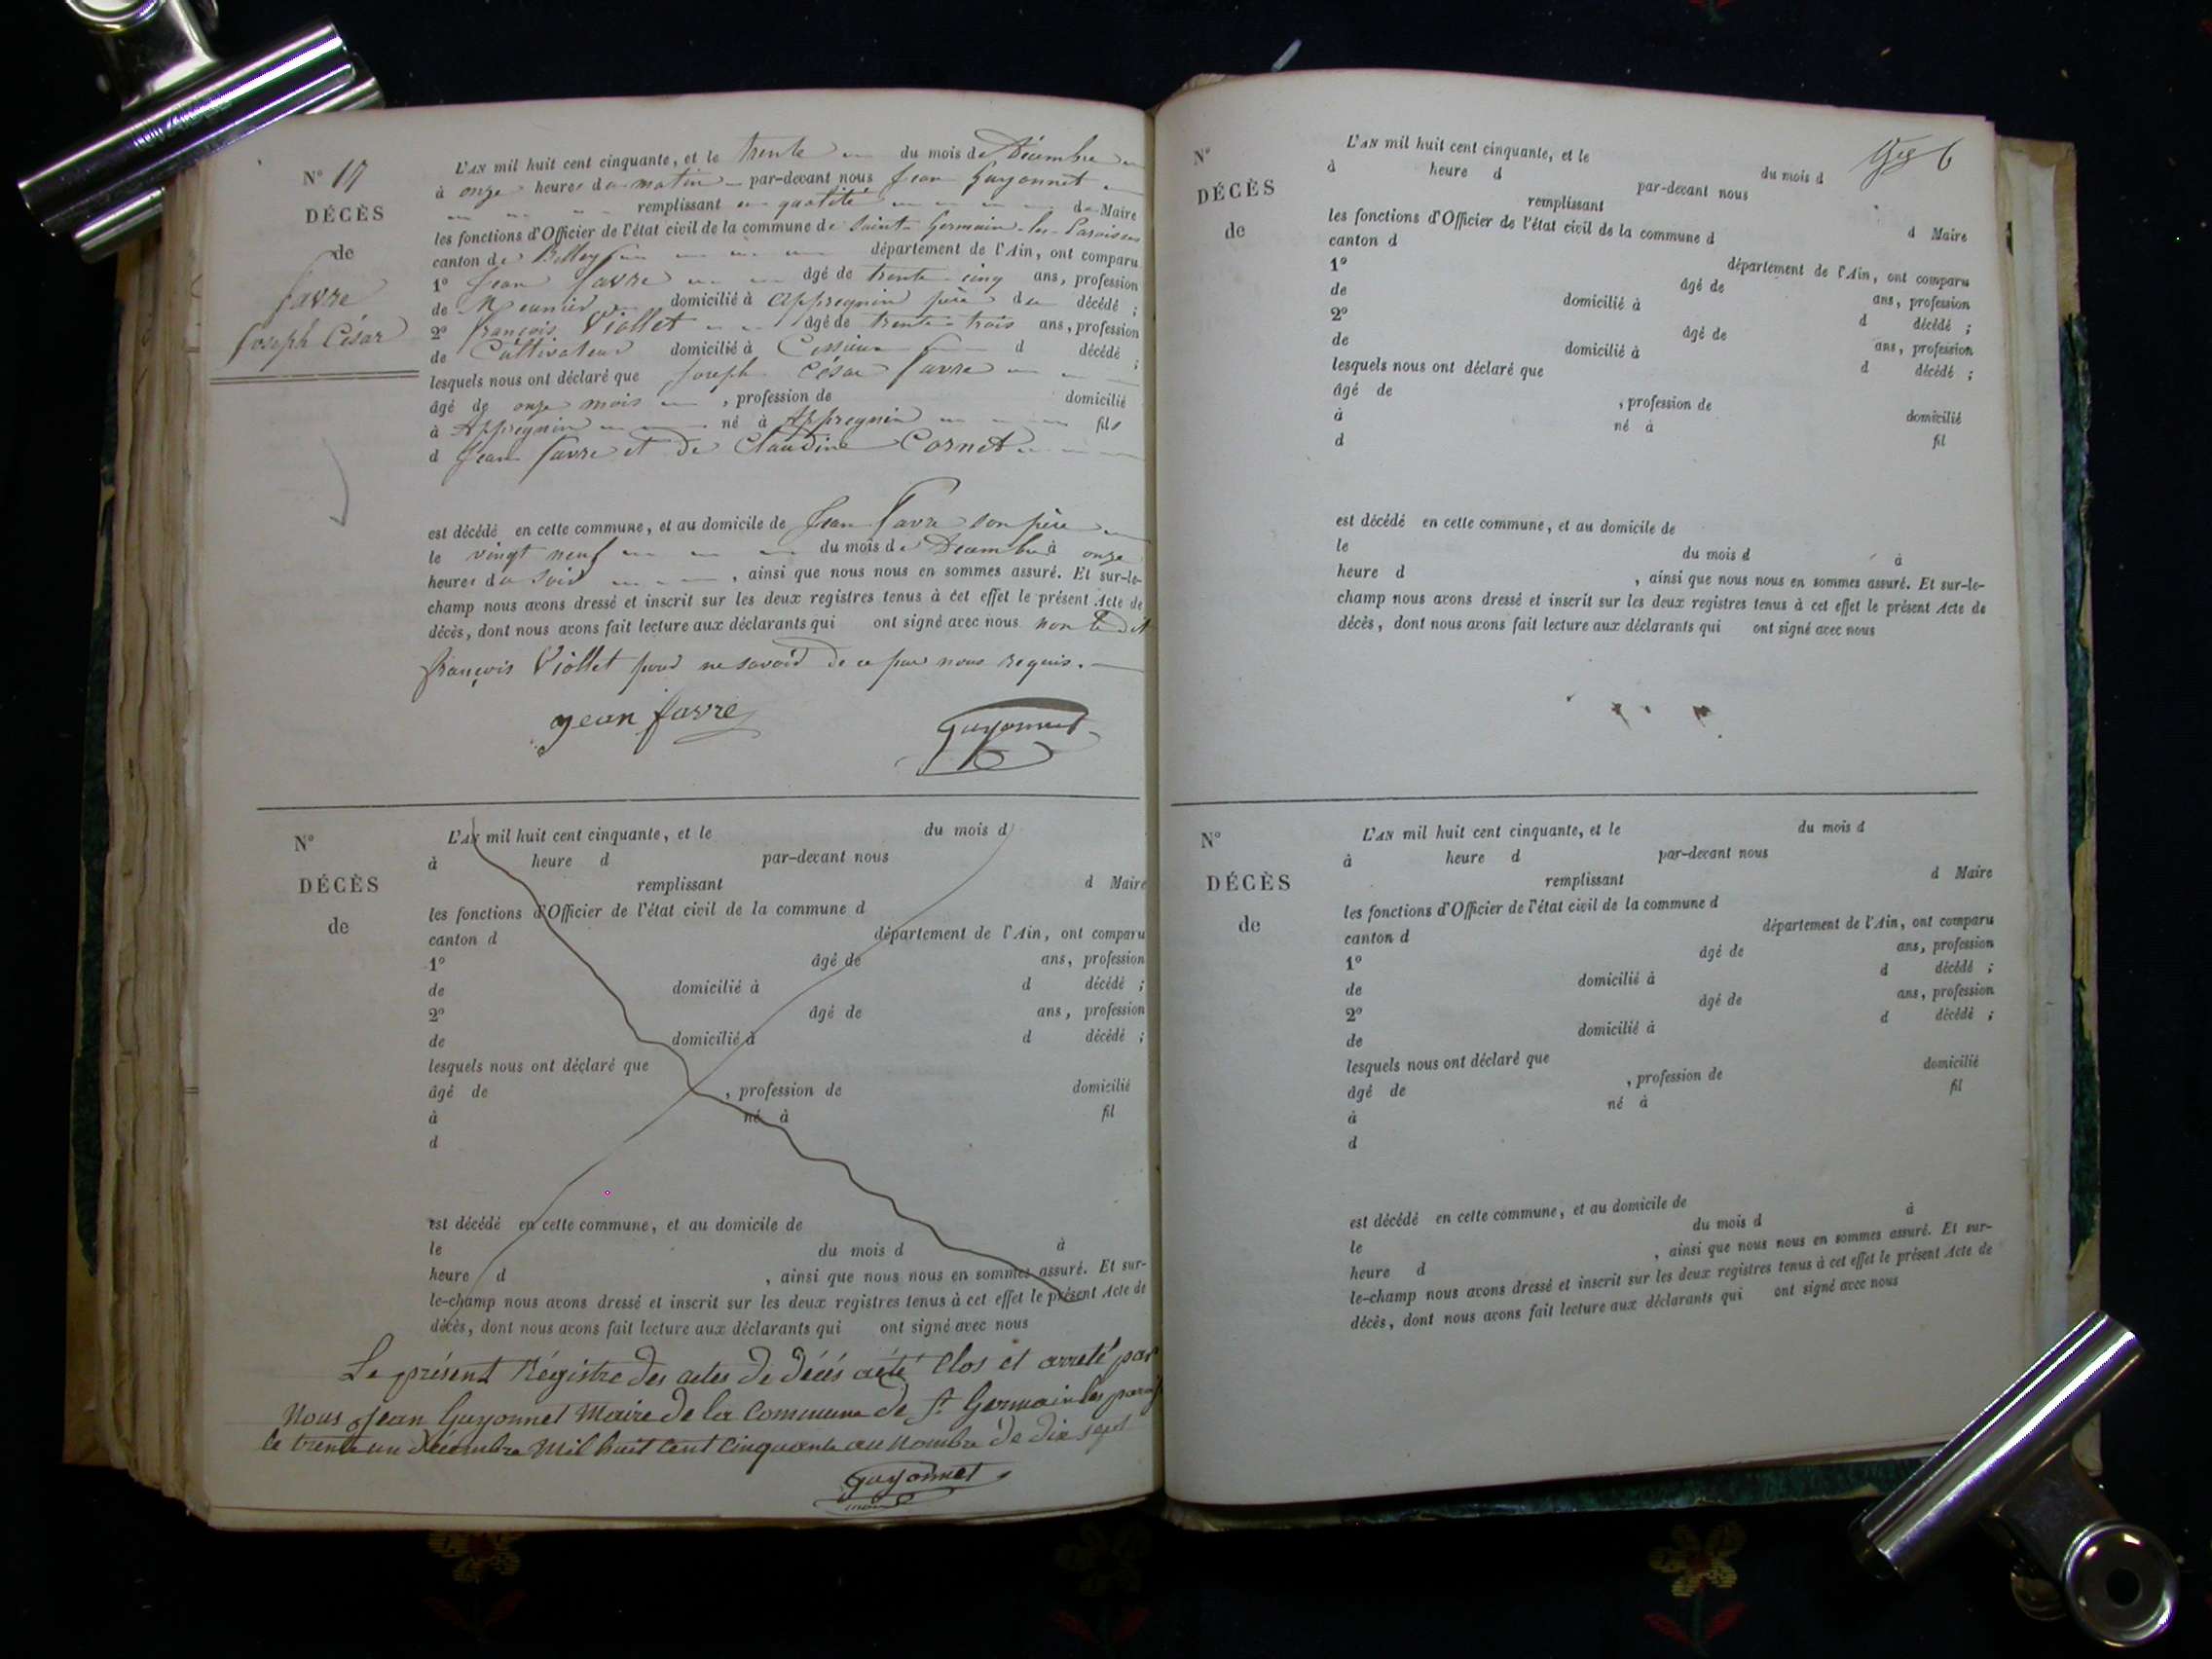 N° 17
DÉCÈS
de
favre
Joseph César
L'AN mil huit cent cinquante, et le trente du mois de Décembre
à onze heures du matin par-devant nous Jean Guyonnet
remplissant en qualité de Maire
les fonctions d'Officier de l'état civil de la commune de Saint-Germain-les-Paroisses
canton de Belley département de l'Ain, ont comparu
1° Jean favre âgé de trente-cinq ans, profession
de Meunier domicilié à Appregnin père du décédé ;
2° françois Viollet âgé de trente-trois ans, profession
de Cultivateur domicilié à Cessieux d décédé ;
lesquels nous ont déclaré que Joseph César favre
âgé de onze mois , profession de domicilié
à Appregnin né à Appregnin fils
d Jean favre et de Claudine Cornet
est décédé en cette commune, et au domicile de Jean favre son père
le vingt neuf du mois de Décembre à onze
heures du soir , ainsi que nous nous en sommes assuré. Et sur-le-
champ nous avons dressé et inscrit sur les deux registres tenus à cet effet le présent Acte de
décès, dont nous avons fait lecture aux déclarants qui ont signé avec nous non le dit
françois Viollet pour ne savoir de ce par nous requis.
jean favre
Guyonnet
N°
DÉCÈS
de
L'AN mil huit cent cinquante, et le du mois d
à heure d par-devant nous
remplissant d Maire
les fonctions d'Officier de l'état civil de la commune d
canton d département de l'Ain, ont comparu
1° âgé de ans, profession
de domicilié à d décédé ;
2° âgé de ans, profession
de domicilié à d décédé ;
lesquels nous ont déclaré que
âgé de , profession de domicilié
à né à fil
d
est décédé en cette commune, et au domicile de
le du mois d à
heure d , ainsi que nous nous en sommes assuré. Et sur-
le-champ nous avons dressé et inscrit sur les deux registres tenus à cet effet le présent Acte de
décès, dont nous avons fait lecture aux déclarants qui ont signé avec nous
Le présent Régistre des actes de décés a été Clos et arreté par
Nous Jean Guyonnet Maire de la Commune de St Germain les
le trente un Décembre Mil huit Cent Cinquante au nombre de dix sept
Guyonnet
N°
DÉCÈS
de
L'AN mil huit cent cinquante, et le du mois d
à heure d par-devant nous
remplissant d Maire
les fonctions d'Officier de l'état civil de la commune d
canton d département de l'Ain, ont comparu
1° âgé de ans, profession
de domicilié à d décédé ;
2° âgé de ans, profession
de domicilié à d décédé ;
lesquels nous ont déclaré que
âgé de , profession de domicilié
à né à fil
d
est décédé en cette commune, et au domicile de
le du mois d à
heure d , ainsi que nous nous en sommes assuré. Et sur-le-
champ nous avons dressé et inscrit sur les deux registres tenus à cet effet le présent Acte de
décès, dont nous avons fait lecture aux déclarants qui ont signé avec nous
N°
DÉCÈS
de
L'AN mil huit cent cinquante, et le du mois d
à heure d par-devant nous
remplissant d Maire
les fonctions d'Officier de l'état civil de la commune d
canton d département de l'Ain, ont comparu
1° âgé de ans, profession
de domicilié à d décédé ;
2° âgé de ans, profession
de domicilié à d décédé ;
lesquels nous ont déclaré que
âgé de , profession de domicilié
à né à fil
d
est décédé en cette commune, et au domicile de
le du mois d à
heure d , ainsi que nous nous en sommes assuré. Et sur-
le-champ nous avons dressé et inscrit sur les deux registres tenus à cet effet le présent Acte de
décès, dont nous avons fait lecture aux déclarants qui ont signé avec nous